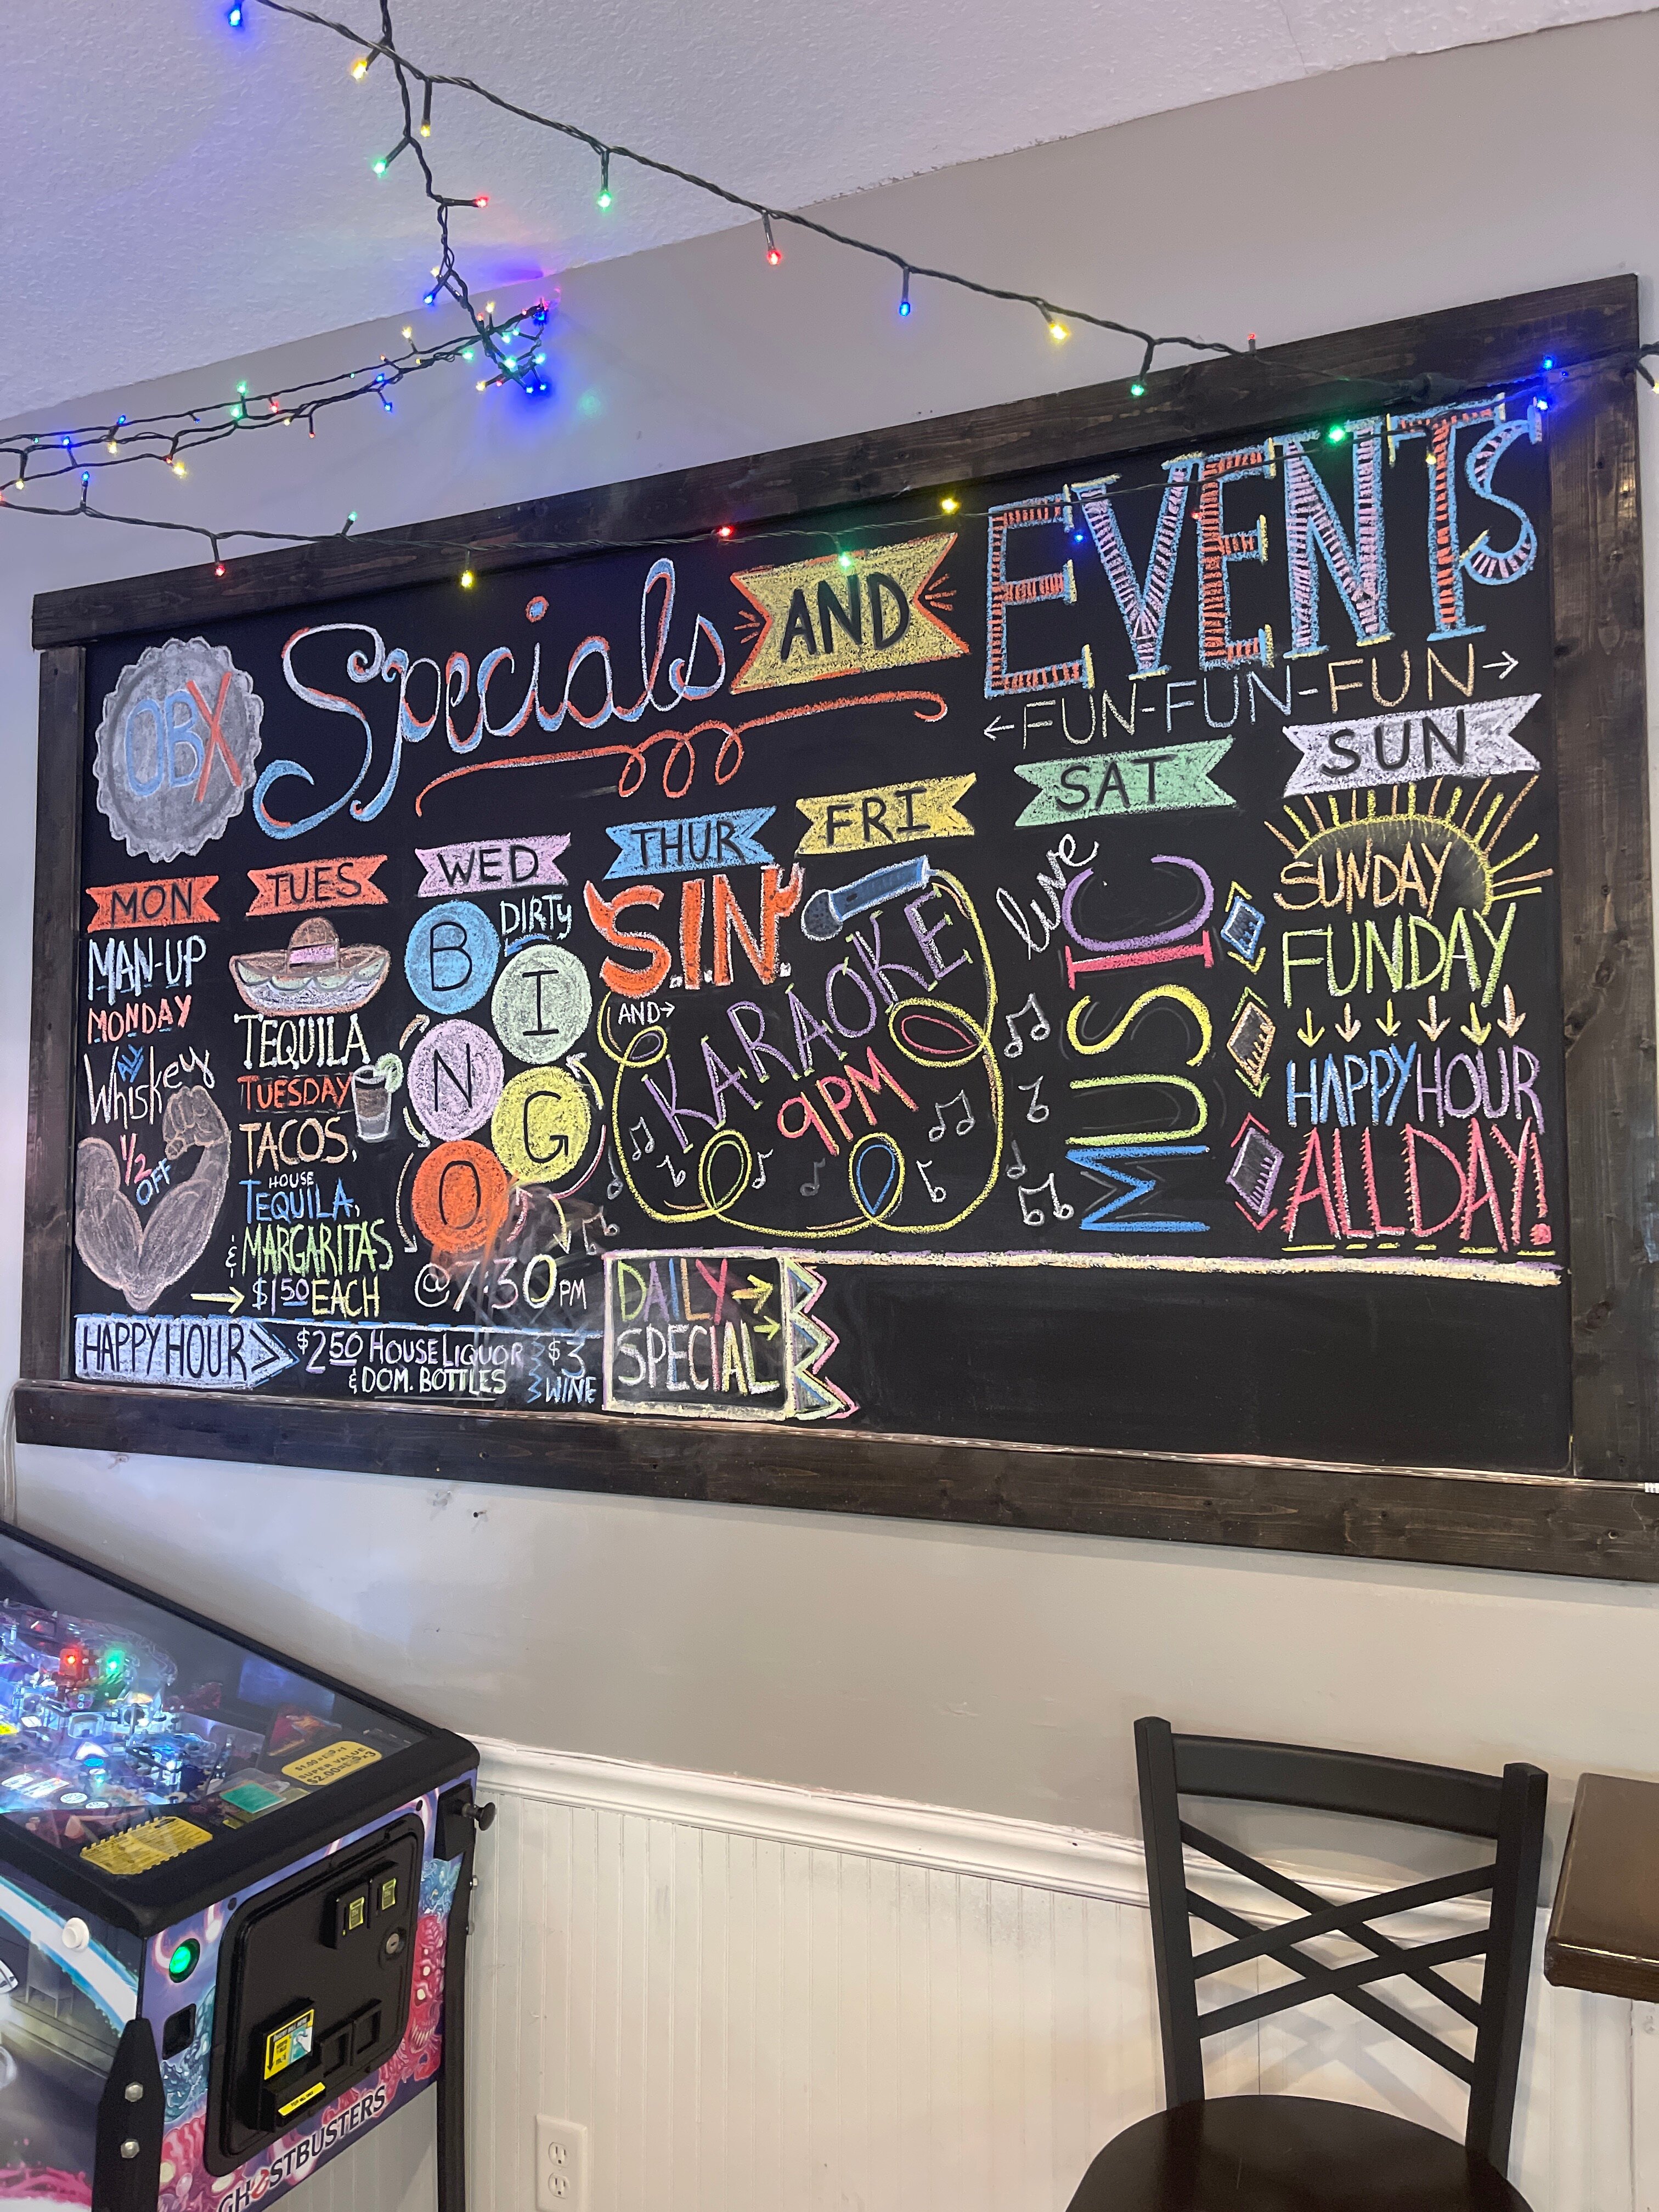 OBX
Specials AND EVENTS
←FUN-FUN-FUN→
MON
MAN-UP
MONDAY
ALL
Whiskey
1/2
OFF
TUES
TEQUILA
TUESDAY
TACOS,
HOUSE
TEQUILA,
& MARGARITAS
→ $1.50 EACH
WED
DIRTY
B
I
N
G
O
@7:30PM
THUR
S.I.N.
AND→
FRI
KARAOKE
9PM
SAT
live
MUSIC
SUN
SUNDAY
FUNDAY
HAPPY HOUR
ALL DAY!
HAPPY HOUR
$2.50 HOUSE LIQUOR
& DOM. BOTTLES
$3
WINE
DAILY
SPECIAL
SUPER VALUE
GHOSTBUSTERS